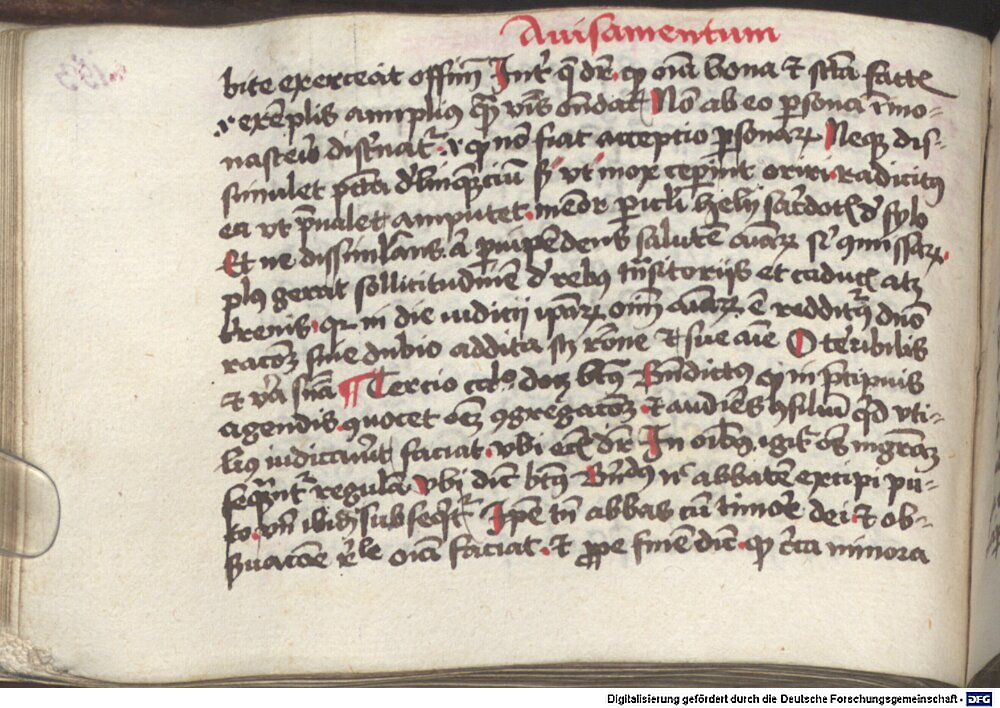 Auisamentum
bite exerceat offm̄ Int̄ q̄ dr̄ . ꝙ oīa bona et sctā fact
et exēplis amplius qͣ v̄bis on̄dat Nō ab eo ꝑsona ī mo-
nasterio disc̄natr̄ . ꝙ nō fiat acceptio ꝑsonaꝝ Neqꝫ dis-
simulet pctā d'linquēciū ꝫ vt mox ceperint oriri . radicitꝰ
ea vt p̄ualet amputet . memor ꝑicl'i hely sac̄dotis d' sylo
Et ne dissimulans aut ꝑuipendens salutē aīaꝝ sꝫ ꝯmissaꝝ .
plꝰ gerat sollicitudinē d' rebꝰ tn̄sitorijs et caducis atqꝫ
t'renis . qꝛ in die iudicij ip̄aꝝ oīm aīaꝝ ē redditurꝰ dn̄o
racōꝫ sine dubio addita et sue aīe O terribilis
et v̄a sn̄ia ¶ Tercio btꝰ Bn̄dictꝰ ꝙ in p̄cipuis
agendis . ꝯuocet oēꝫ ꝯgregacōꝫ . et audiēs ꝯsiliū qd vti-
liꝰ iudicauit faciat . vbi ecͣ dr̄ In oībꝰ igit̄ oēs mgr̄am
seqūnt̄ regulā vbi dic̄ btꝰ Bn̄dꝰ nͨ abbatē excipi pu-
to . vn̄ ibidē subseqt̄ Ip̄e tn̄ abbas cū timore dei et ob-
ẜuacōe r̄le oīa faciat . et ꝓpe finē dic̄ . ꝙ c̄ca minora
Digitalisierung gefördert durch die Deutsche Forschungsgemeinschaft - DFG